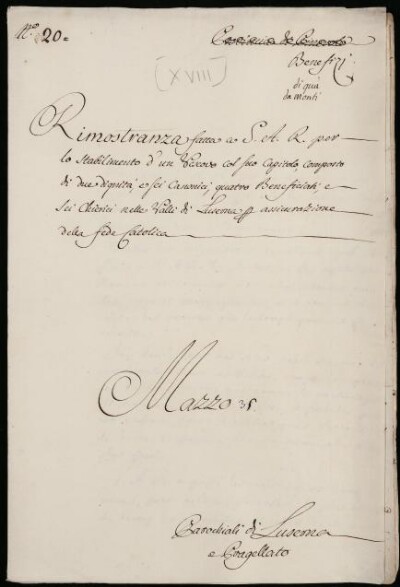 N.º 20.
Benefizi
di quà
da monti
[XVIII]
Rimostranza fatta a S. A. R. per
lo stabilimento d'un Vescovo col suo Capitolo, composto
di due dignità e sei Canonici, quattro Beneficiati, e
sei Chierici nelle Valli di Luserna pr assicurazione
della fede Catolica
Mazzo 35
Parochiali di Luserna
e Pragellato